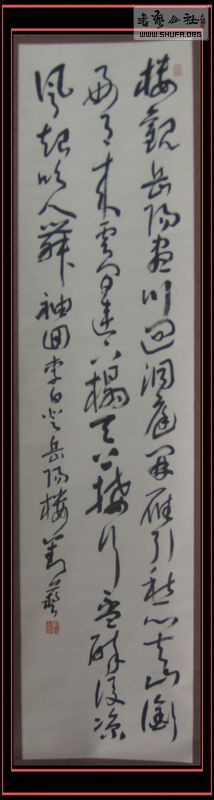 書藝公社
WWW.SHUFA.ORG
樓觀岳陽盡川迥洞庭開雁引愁心去山銜
好月來雲間連下榻天上接行盃醉後涼
風起吹人舞袖回李白登岳陽樓